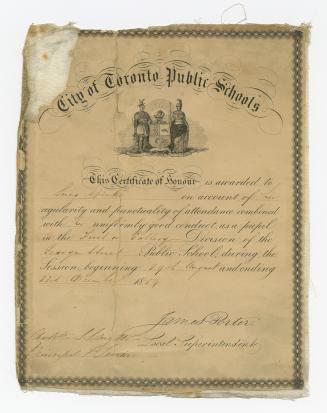 City of Toronto Public Schools
This Certificate of Honour is awarded to
on account of
regularity and punctuality of attendance combined
with uniformly good conduct, as a pupil
in the Division of the
George Street Public School, during the
Session, beginning 29th August and ending
22nd December 1859
James Porter
Charlotte
Local Superintendent
Principal